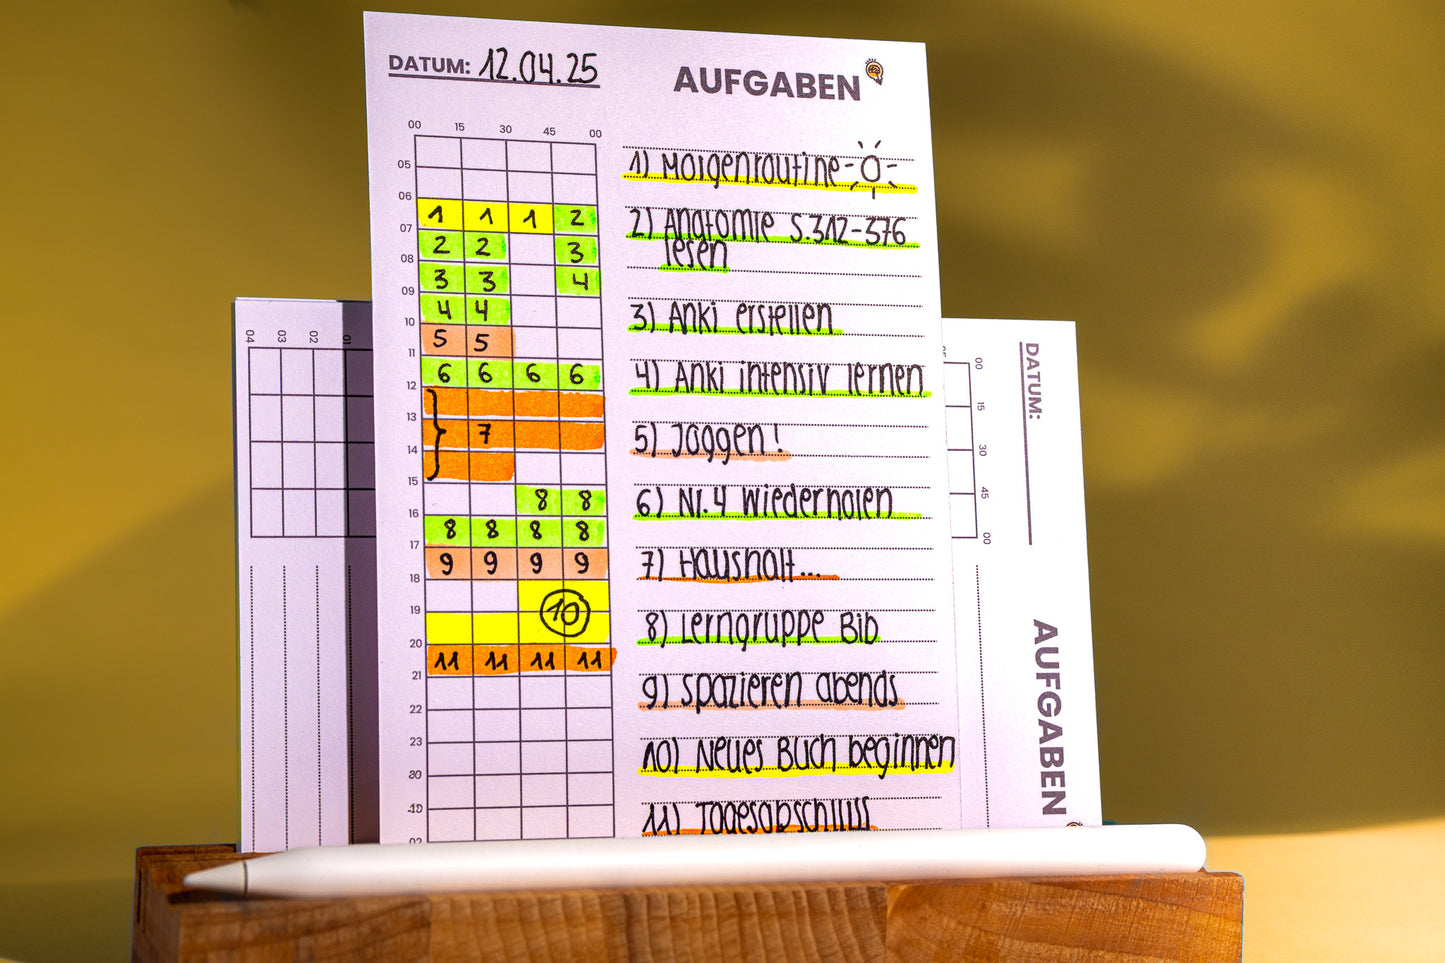 DATUM: 12.04.25
AUFGABEN
00 15 30 45 00
05
06
1 1 1 2
07
2 2 3
08
3 3 4
09
4 4
10
5 5
11
6 6 6 6
12
13
7
14
15
8 8
16
8 8 8 8
17
9 9 9 9
18
19
10
20
11 11 11 11
21
22
23
1) Morgenroutine
2) Anatomie S.312-376
lesen
3) Anki erstellen
4) Anki intensiv lernen
5) Joggen!
6) Nr. 4 Wiederholen
7) Haushalt...
8) Lerngruppe Bib
9) spazieren abends
10) Neues Buch beginnen
11) Tagesabschluss
04
03
02
01
DATUM:
00
15
30
45
00
AUFGABEN